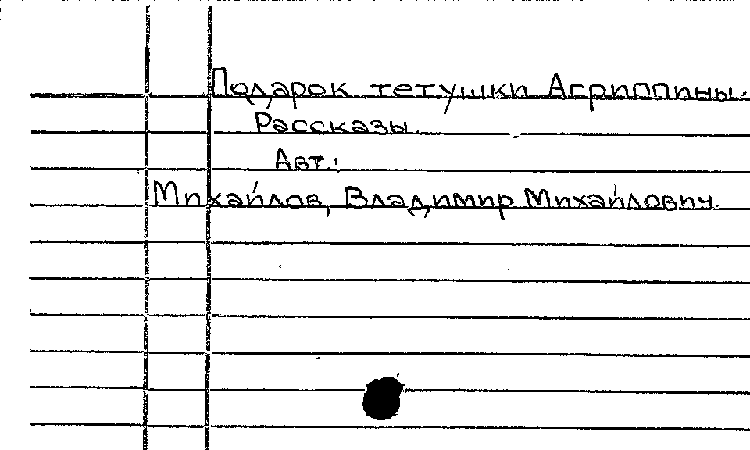 Подарок тетушки Агриппины.
Рассказы.
Авт.:
Михайлов, Владимир Михайлович.